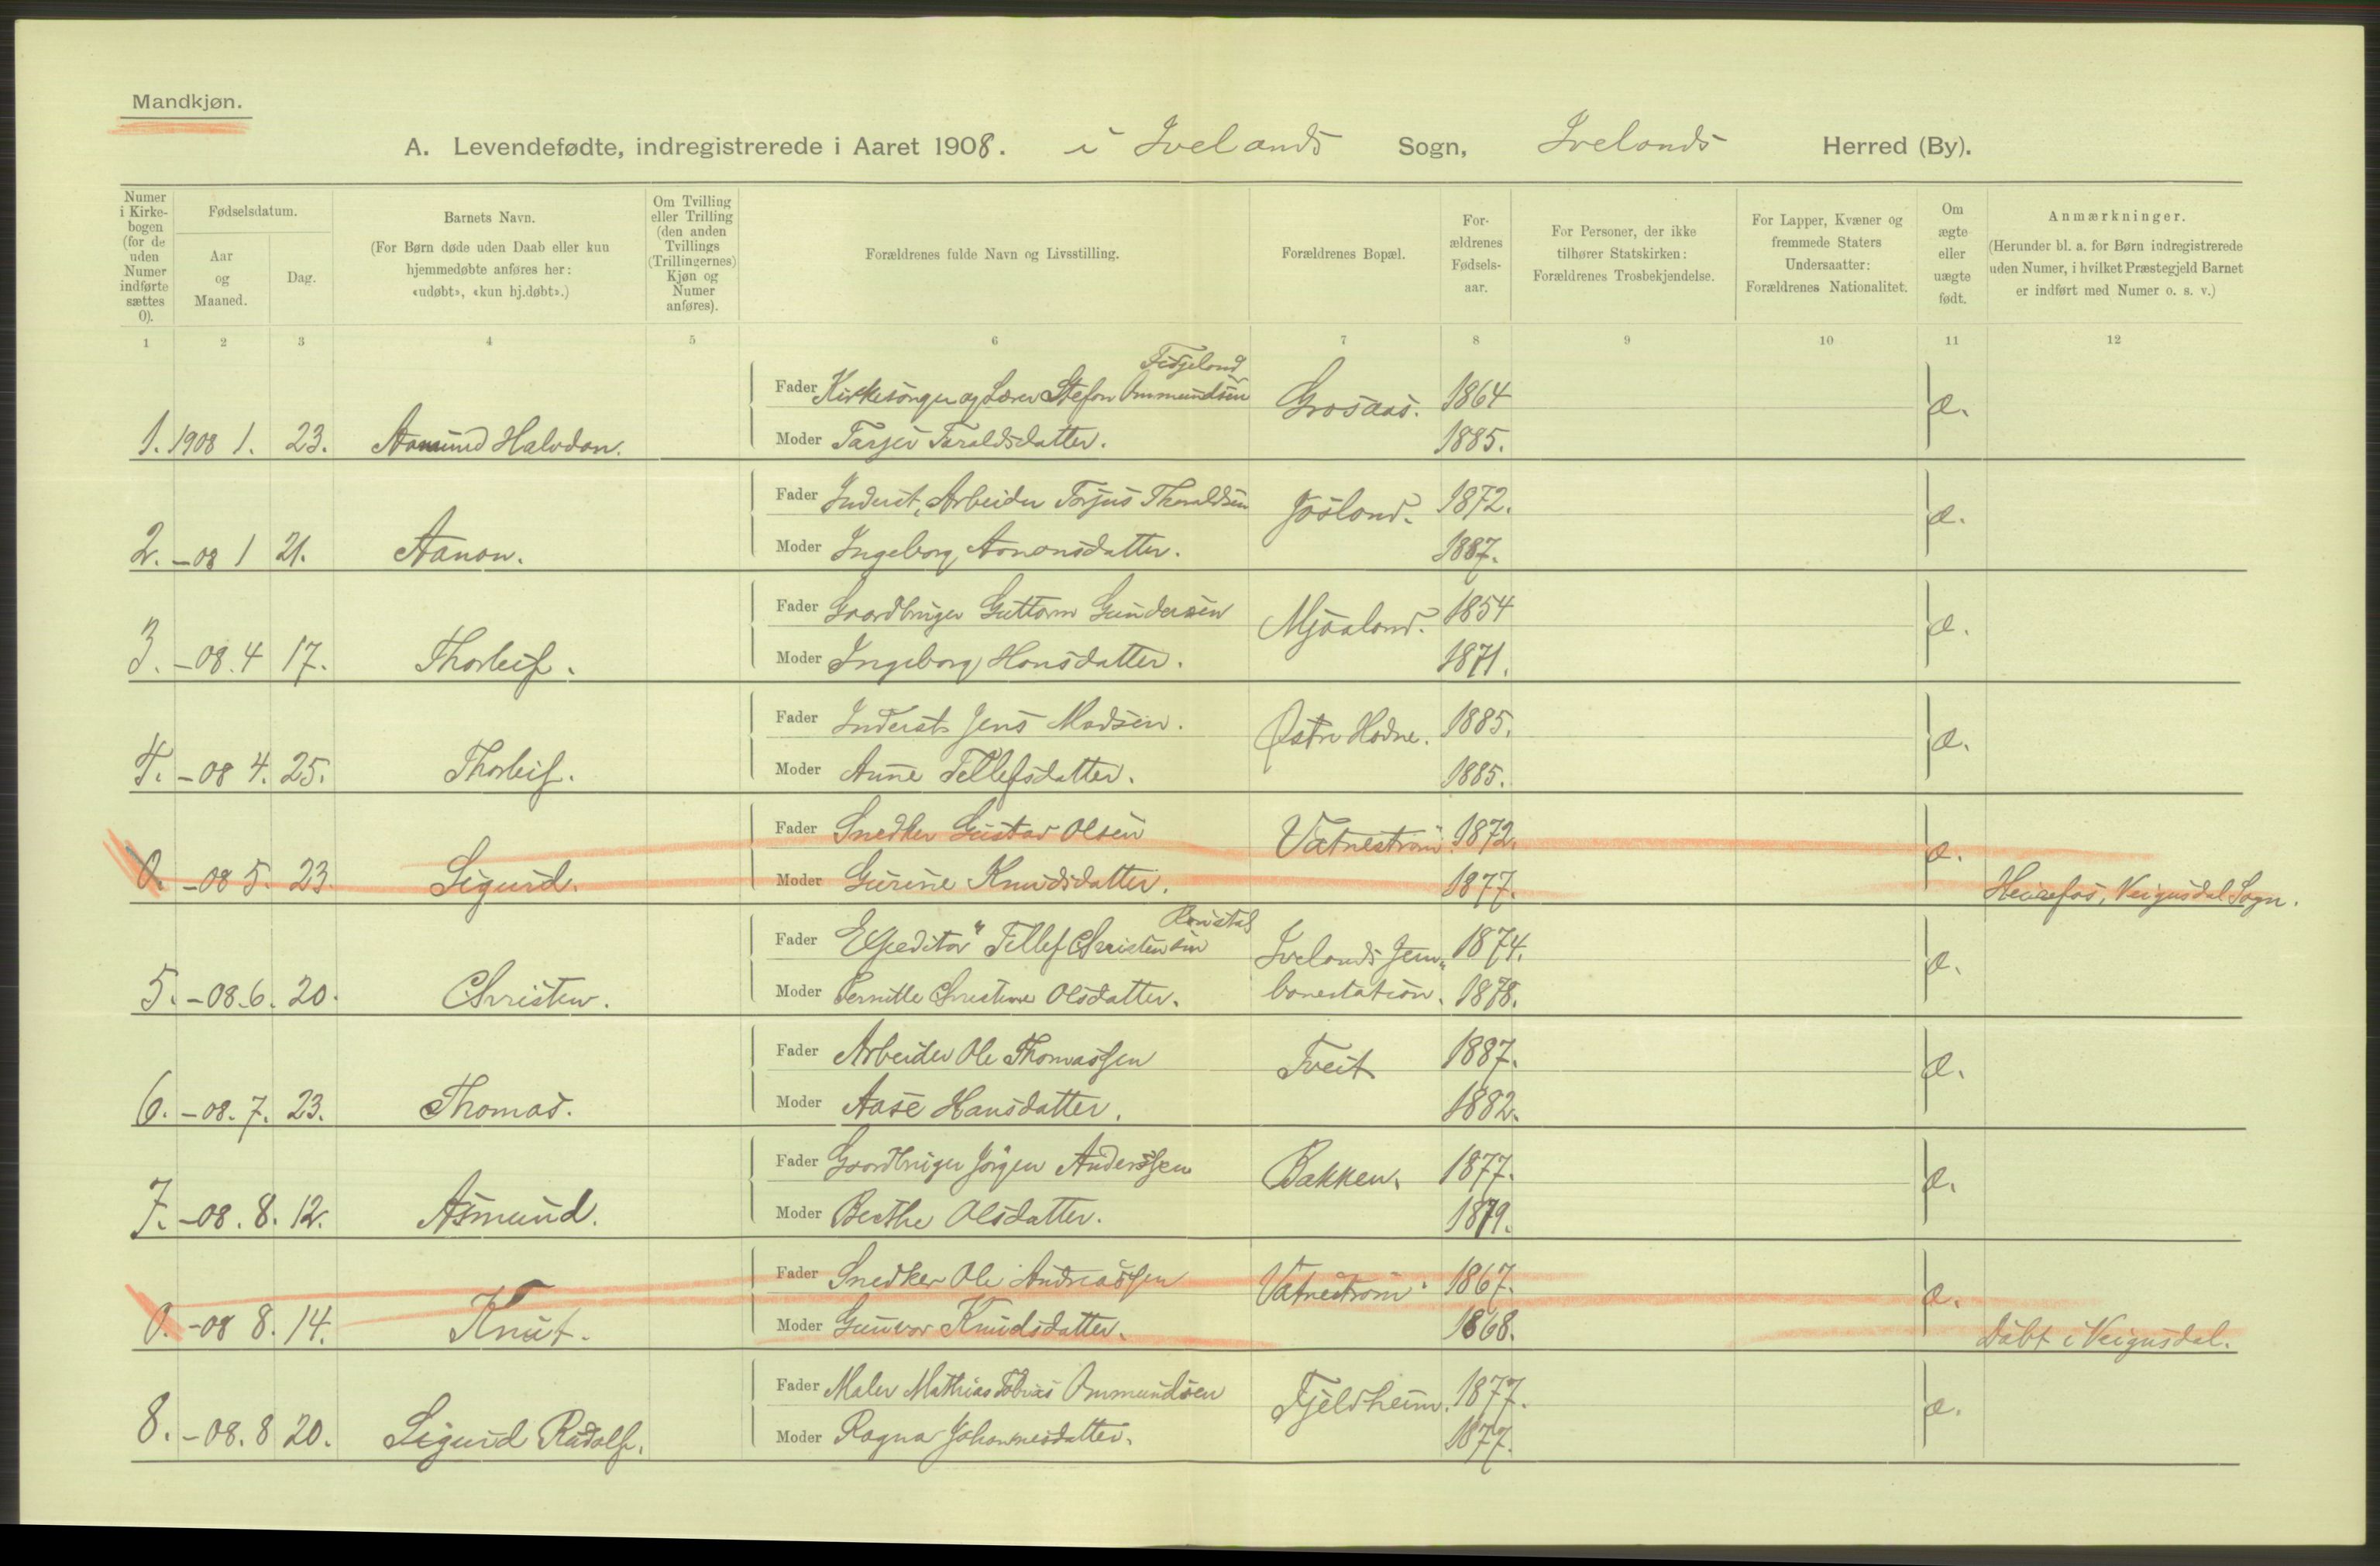 Mandkjøn.
A. Levendefødte, indregistrerede i Aaret 1908. i Ivelands Sogn, Ivelands Herred (By).
Numer i Kirkebogen (for de uden Numer indførte sættes 0).
Fødselsdatum.
Aar og Maaned.
Dag.
Barnets Navn.
(For Børn døde uden Daab eller kun hjemmedøbte anføres her: «udøbt», «kun hj.døbt».)
Om Tvilling eller Trilling (den anden Tvillings (Trillingernes) Kjøn og Numer anføres).
Forældrenes fulde Navn og Livsstilling.
Forældrenes Bopæl.
Forældrenes Fødselsaar.
For Personer, der ikke tilhører Statskirken: Forældrenes Trosbekjendelse.
For Lapper, Kvæner og fremmede Staters Undersaatter: Forældrenes Nationalitet.
Om ægte eller uægte født.
Anmærkninger.
(Herunder bl. a. for Børn indregistrerede uden Numer, i hvilket Præstegjeld Barnet er indført med Numer o. s. v.)
1 2 3 4 5 6 7 8 9 10 11 12
Fidjeland
Fader Kirkesanger og Lærer Stefan Ommundsen Grosaas. 1864 æ.
1. 1908 1. 23. Aamund Halvdan. Moder Tarjer Taraldsdatter. 1885.
Fader Inderst, Arbeider Torjus Tharaldsen Josland. 1872. æ.
2. -08 1 21. Aanon. Moder Ingeborg Aanonsdatter. 1887.
Fader Gaardbruger Guttorm Gundersen Mjaaland. 1854 æ.
3. -08. 4 17. Thorleif. Moder Ingeborg Hansdatter. 1871.
Fader Inderst Jens Madsen. Østre Hodne. 1885. æ.
4. -08 4. 25. Thorleif. Moder Anne Tellefsdatter. 1885.
Fader Snedker Gustav Olsen Vatnestrøm. 1872. æ.
0. -08 5. 23. Sigurd. Moder Gurine Knudsdatter. 1877. Heirefos, Veigusdal Sogn.
Fader Expeditør Tellef Christensen Ivelands Jern- 1874. æ.
5. -08. 6. 20. Christen. Moder Pernille Christine Olsdatter. banestation. 1878.
Fader Arbeider Ole Thomassen Tveit 1887. æ.
6. -08. 7. 23. Thomas. Moder Aase Hansdatter. 1882.
Fader Gaardbruger Jørgen Anderssen Bakken. 1877. æ.
7. -08. 8. 12. Asmund. Moder Berthe Olsdatter. 1879.
Fader Snedker Ole Andreassen Vatnestrøm. 1867. æ.
0. -08 8. 14. Knut. Moder Gunvor Knudsdatter. 1868. Døbt i Veigusdal.
Fader Maler Mathias Tobias Ommundsen Fjeldheim. 1877. æ.
8. -08. 8 20. Sigurd Radolf. Moder Ragna Johannesdatter. 1877.